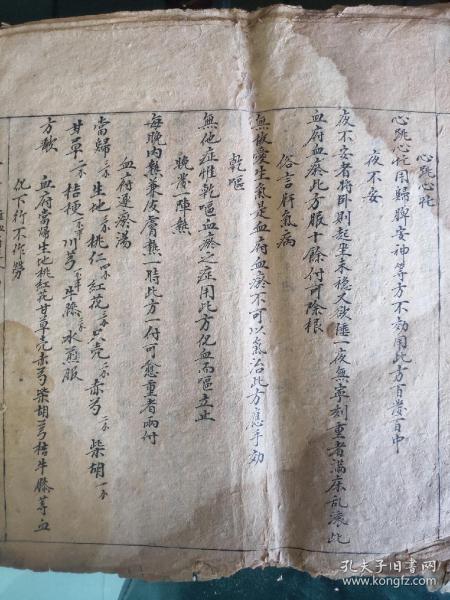 心跳心忙
心跳心忙用歸脾安神等方不効用此方百發百中
夜不安
夜不安者將卧則起坐未穩又欲睡一夜無寧刻重者滿床乱滾此
血府血瘀此方服十餘付可除根
俗言肝氣病
無故愛生氣是血府血瘀不可以氣治此方應手効
乾嘔
無他症惟乾嘔血瘀之症用此方化血而嘔立止
晚發一陣熱
每晚内熱兼皮膚熱一時此方一付可愈重者兩付
血府逐瘀湯
當歸三尔生地三尔桃仁四尔紅花三尔只壳二尔赤芍二尔柴胡一尔
甘草二尔桔梗川芎牛膝三尔水煎服
方歌
血府當歸生地桃紅花甘草壳赤芍柴胡芎桔牛膝等血
化下行不作勞
孔夫子旧书网
www.kongfz.com